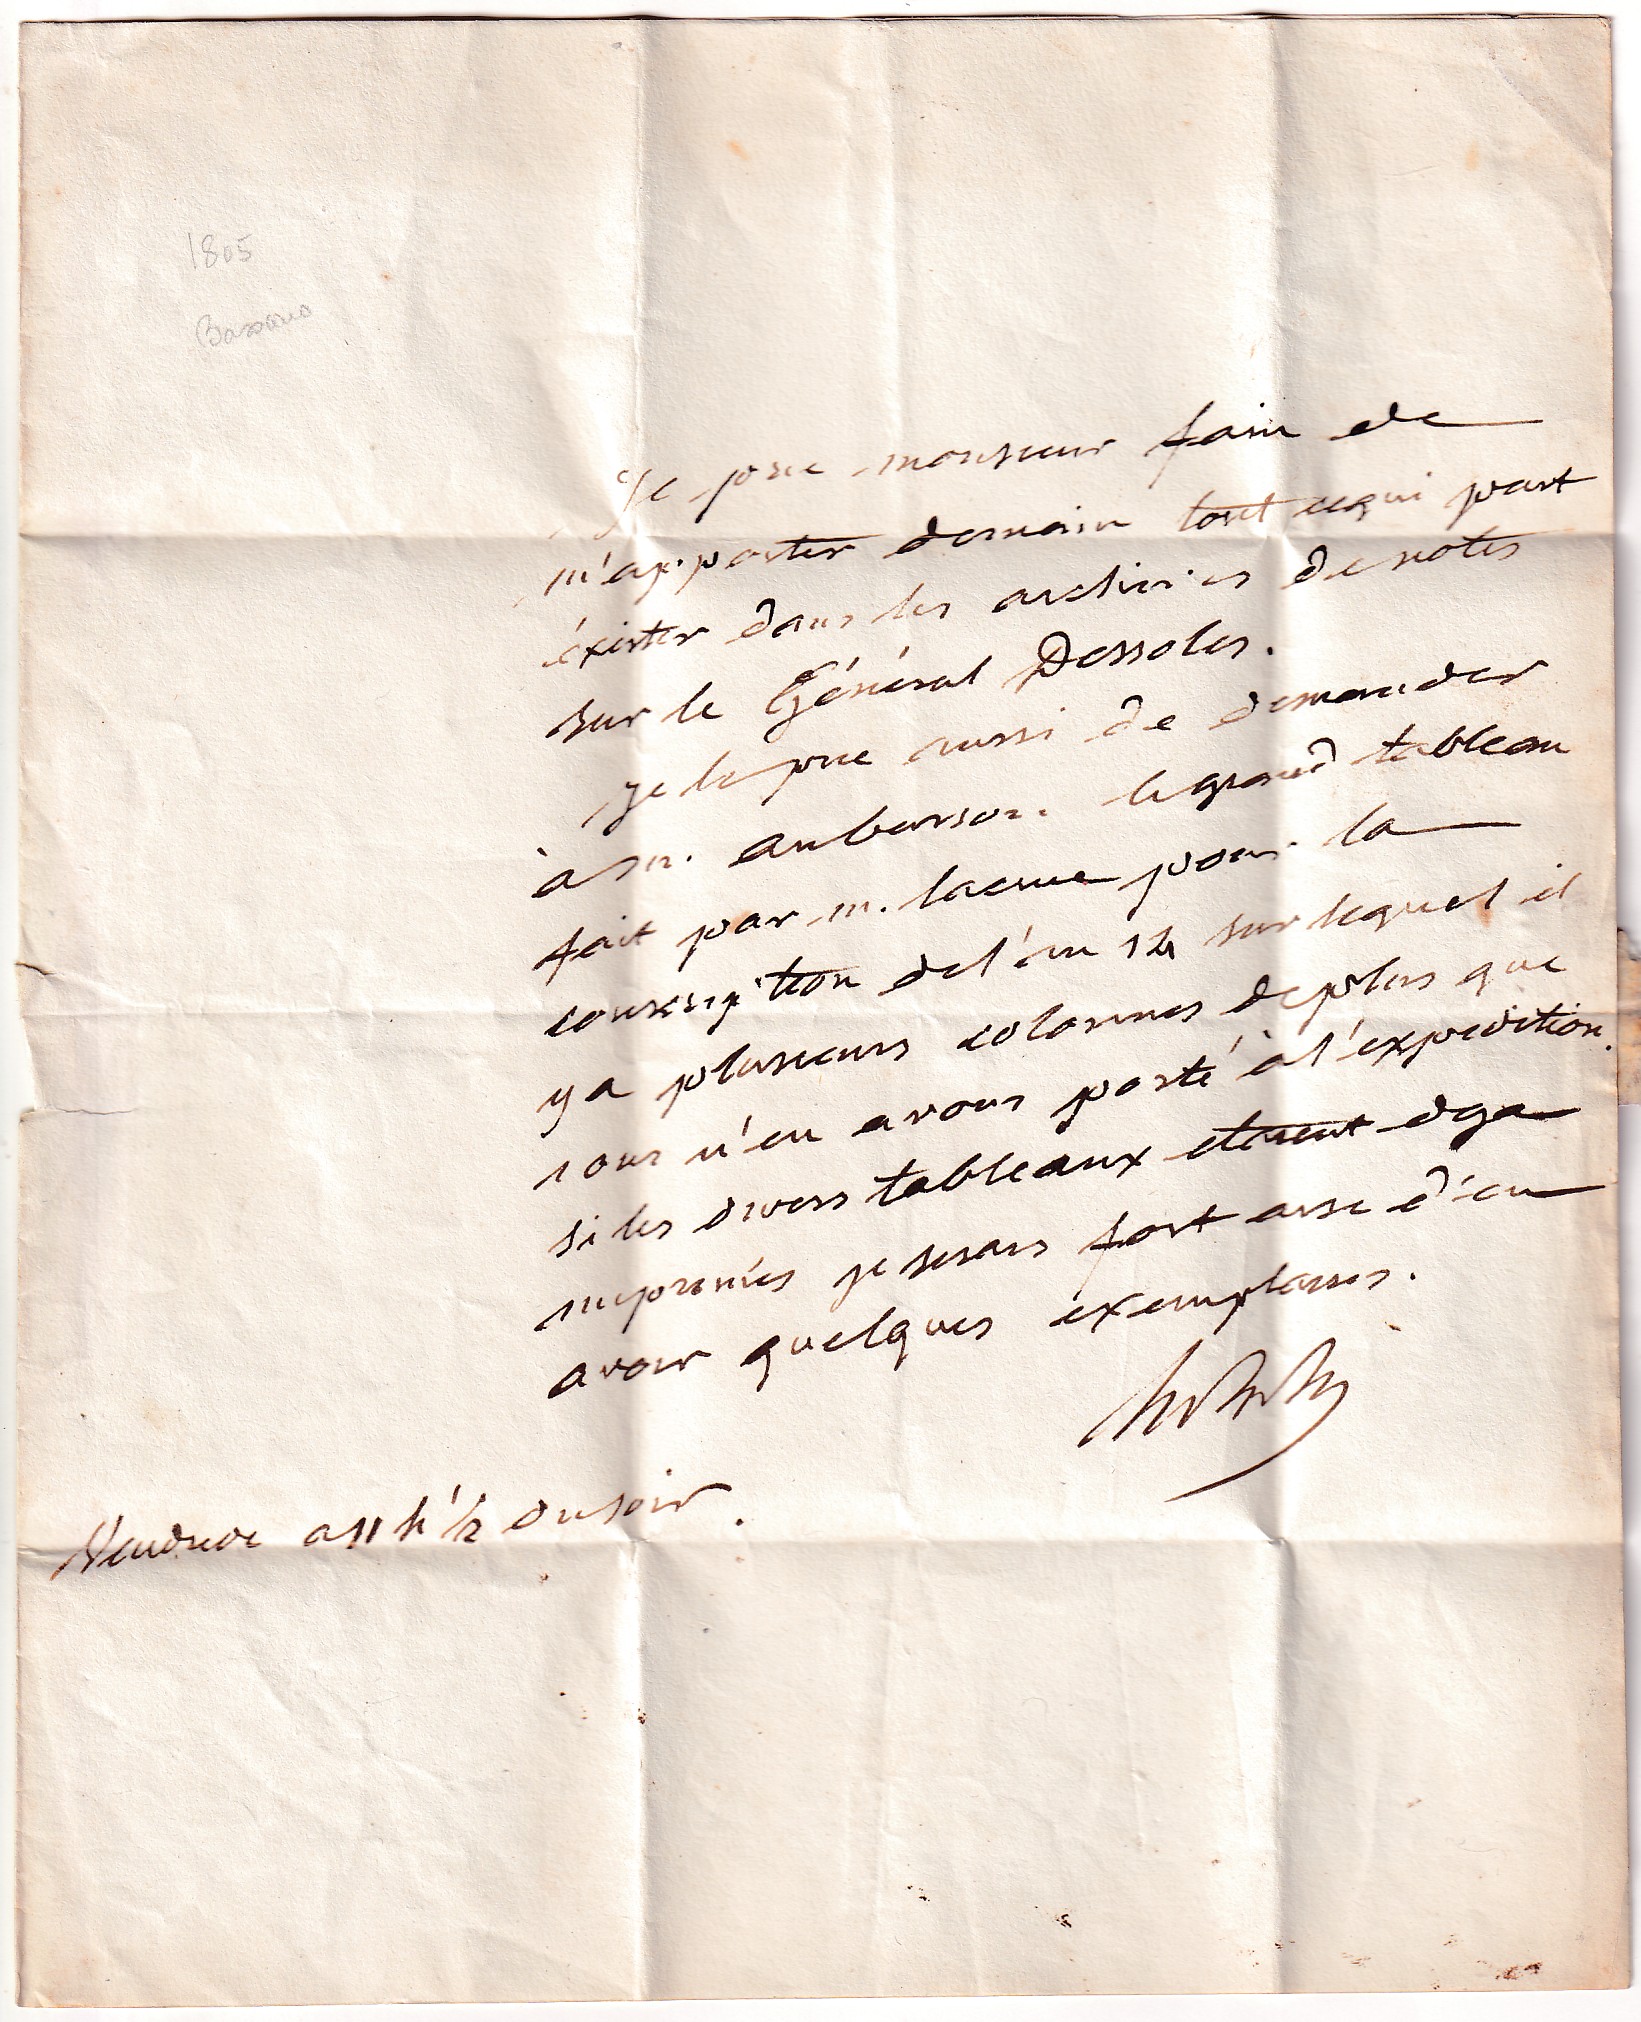 1805
Bassano
Je prie monsieur fain de
m'apporter demain tout cequi peut
éxister dans les archives de notes
sur le Général Dessoles.
je le prie aussi de demander
à m. auberson. le grand tableau
fait par m. lacuée pour la
conscription del'an 14 sur lequel il
ya plusieurs colonnes deplus que
nous n'en avons porté àl'expedition.
si les divers tableaux etaient deja
imprimés je serais fort aise d'en
avoir quelques exemplaires.
Vendredi a 11 h 1/2 dusoir.